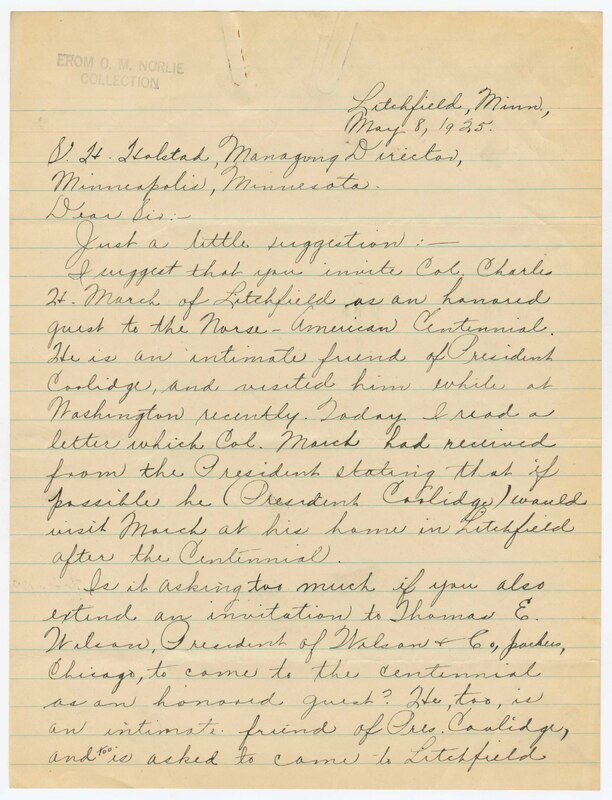 FROM O. M. NORLIE
COLLECTION
Litchfield, Minn.,
May 8, 1925.
S. H. Holstad, Managing Director,
Minneapolis, Minnesota.
Dear Sir:-
Just a little suggestion:-
I suggest that you invite Col. Charles
H. March of Litchfield as an honored
guest to the Norse-American Centennial.
He is an intimate friend of President
Coolidge, and visited him while at
Washington recently. Today I read a
letter which Col. March had received
from the President stating that if
possible he (President Coolidge) would
visit March at his home in Litchfield
after the Centennial.
Is it asking too much if you also
extend an invitation to Thomas E.
Wilson, President of Wilson & Co, packers,
Chicago, to come to the centennial
as an honored guest? He, too, is
an intimate friend of Pres. Coolidge,
and too is asked to come to Litchfield